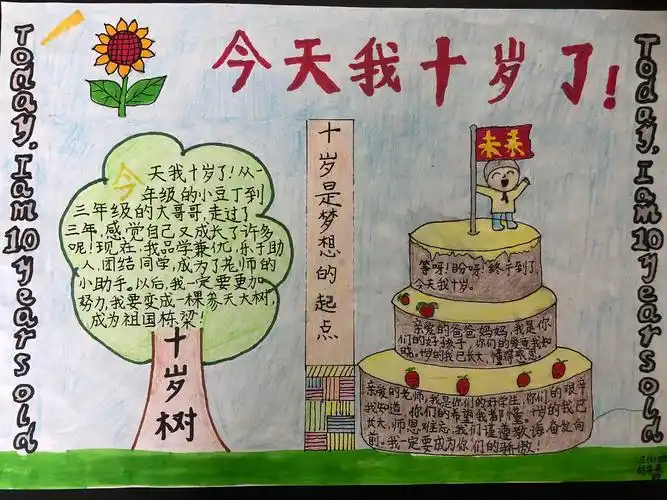 今天我十岁了!
Today, I am 10 years old
今天我十岁了!从一
年级的小豆丁到
三年级的大哥哥,走过了
三年,感觉自己又成长了许多
呢!现在,我品学兼优,乐于助
人,团结同学,成为了老师的
小助手。以后,我一定要更加
努力,我要变成一棵参天大树,
成为祖国栋梁!
十岁树
十岁是梦想的起点
未来
等呀!盼呀!终于到了,
今天我十岁。
亲爱的爸爸妈妈,我是你
们的好孩子,你们的爱意我知
晓。十岁的我已长大,懂得感恩。
亲爱的老师,我是你们的好学生,你们的艰辛
我知道,你们的希望我都懂。十岁的我已
长大,师恩难忘,我们谨遵教诲奋发向
前。我一定要成为你们的骄傲!
Today, I am 10 years old